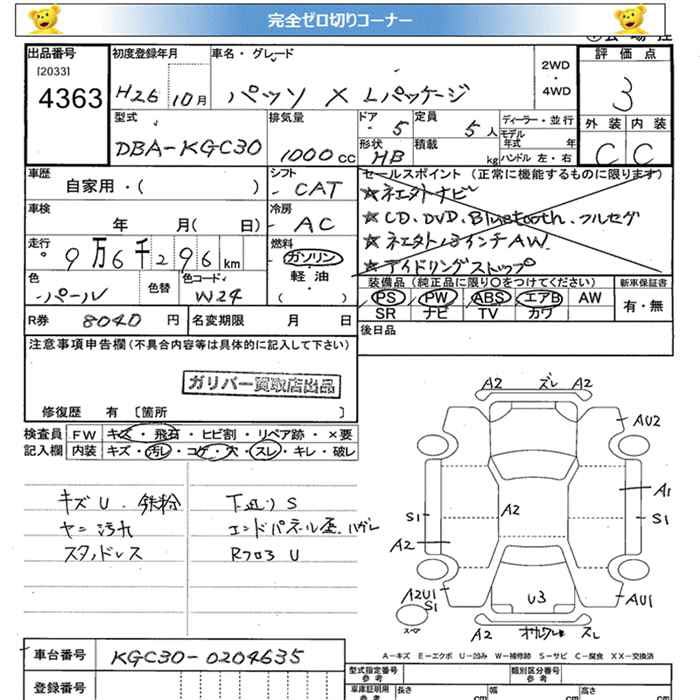 完全ゼロ切りコーナー
出品番号 [2033] 4363
初度登録年月 H26 10月
車名・グレード パッソ X Lパッケージ
2WD・4WD
評価点 3
外装 内装
C C
型式 DBA-KGC30
排気量 1000cc
ドア 5 定員 5人
形状 HB 積載 kg
ディーラー・並行
モデル年式 年
ハンドル 左・右
車歴 自家用・( )
シフト CAT
セールスポイント (正常に機能するものに限ります)
★ネエタトナビ
★CD.DVD.Bluetooth.フルセグ
★ネエタト13インチAW.
★アイドリングストップ
車検 年 月( 日)
冷房 AC
走行 9万6千296km
燃料 ガソリン・軽油・( )
色 パール 色替 色コード W24
装備品 (純正品に限り〇をつけてください) 新車保証書
PS PW ABS エアB AW
SR ナビ TV カワ
有・無
R券 8040円 名変期限 月 日
後日品
注意事項申告欄(不具合内容等は具体的に記入して下さい)
ガリバー買取店出品
修復歴 有 〔箇所 〕
検査員記入欄
FW キズ・飛石・ヒビ割・リペア跡・×要
内装 キズ・汚れ・コゲ・穴・スレ・キレ・破レ
キズU.鉄粉
ヤニ汚れ
スタッドレス
下廻りS
エンドパネル歪.ハガレ
Rフロア U
A2 ズレ A2
AU2
A1
S1
A2
S1
A2
A2U1
S1
スペア
U3
AU1
A2 ズレ
A-キズ E-エクボ U-凹み W-補修跡 S-サビ C-腐食 XX-交換済
車台番号 KGC30-0204635
登録番号
型式指定番号 参考
類別区分番号 参考
車庫証明用 参考 長さ cm 幅 cm 高さ cm